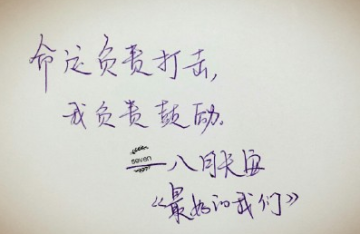 命运负责打击,
我负责鼓励.
seven
——八月长安
《最好的我们》